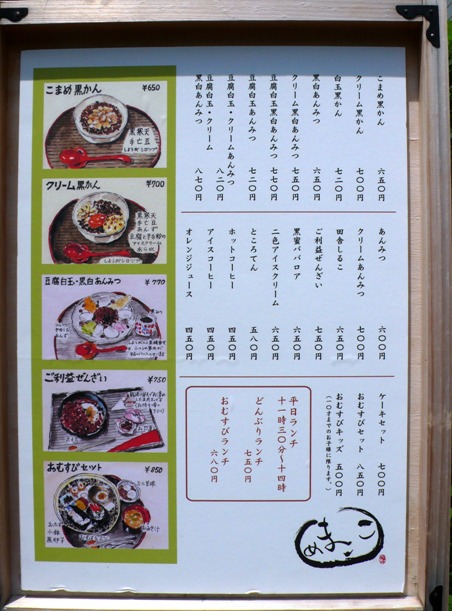 こまめ黒かん ¥650
黒寒天
手亡豆
しょうがシロップ
クリーム黒かん ¥700
黒寒天
手亡豆
あんず
しょうがシロップ
豆腐白玉・黒白あんみつ ¥770
ご利益ぜんざい ¥750
おむすびセット ¥850
こまめ黒かん 六五〇円
クリーム黒かん 七〇〇円
白玉黒かん 七二〇円
黒白あんみつ 六五〇円
クリーム黒白あんみつ 七五〇円
豆腐白玉黒白あんみつ 七七〇円
豆腐白玉あんみつ 七二〇円
豆腐白玉・クリームあんみつ 八二〇円
豆腐白玉・クリーム
黒白あんみつ 八七〇円
あんみつ 六〇〇円
クリームあんみつ 七〇〇円
田舎しるこ 六五〇円
ご利益ぜんざい 七五〇円
黒蜜ババロア 六五〇円
二色アイスクリーム 六五〇円
ところてん 五八〇円
ホットコーヒー 四五〇円
アイスコーヒー 四五〇円
オレンジジュース 四五〇円
ケーキセット 七〇〇円
おむすびセット 八五〇円
おむすびキッズ 五〇〇円
(一〇才までのお子様に限ります。)
平日ランチ
十一時三〇分〜十四時
どんぶりランチ 七五〇円
おむすびランチ 六八〇円
こまめ